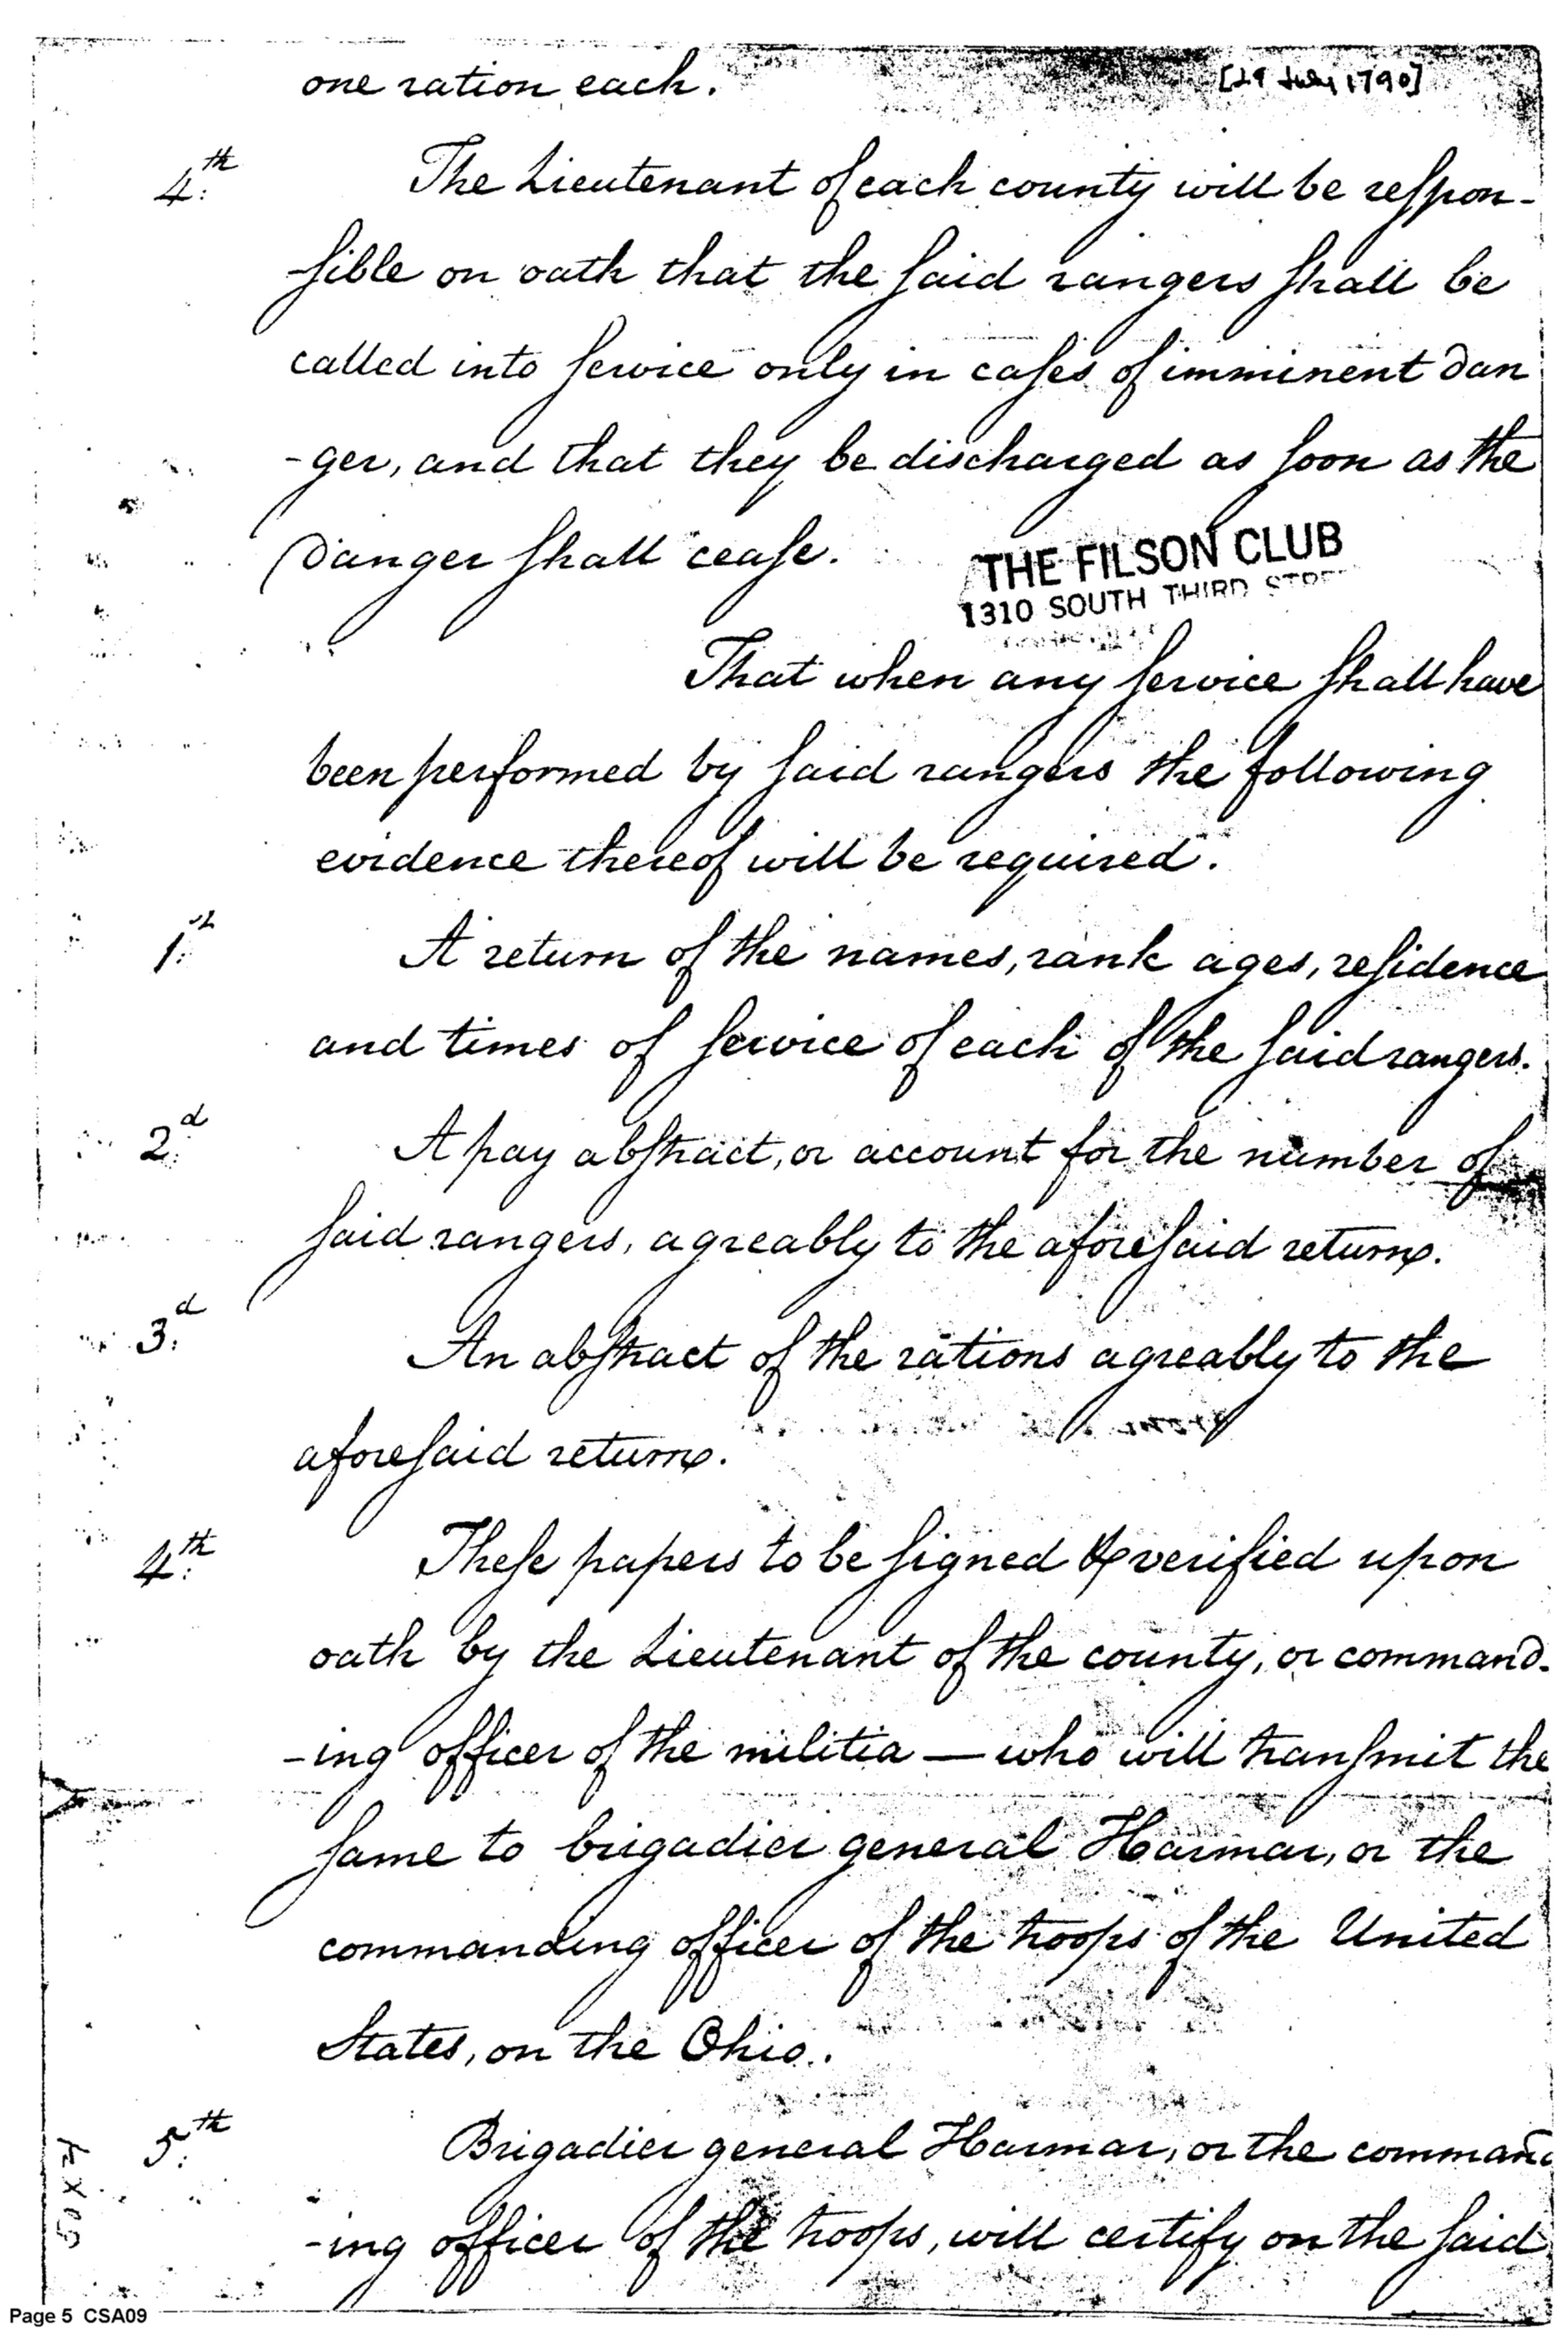 one ration each.
[29 July 1790]
4th The Lieutenant of each county will be respon-
-sible on oath that the said rangers shall be
called into service only in cases of imminent dan
-ger, and that they be discharged as soon as the
danger shall cease.
THE FILSON CLUB
1310 SOUTH THIRD STREE
That when any service shall have
been performed by said rangers the following
evidence thereof will be required.
1st A return of the names, rank ages, residence
and times of service of each of the said rangers.
2d A pay abstract, or account for the number of
said rangers, agreably to the aforesaid returns.
3d An abstract of the rations agreably to the
aforesaid returns.
4th These papers to be signed & verified upon
oath by the Lieutenant of the county, or command-
-ing officer of the militia — who will transmit the
same to brigadier general Harmar, or the
commanding officer of the troops of the United
States, on the Ohio.
5th Brigadier general Harmar, or the command
-ing officer of the troops, will certify on the said
Page 5 CSA09